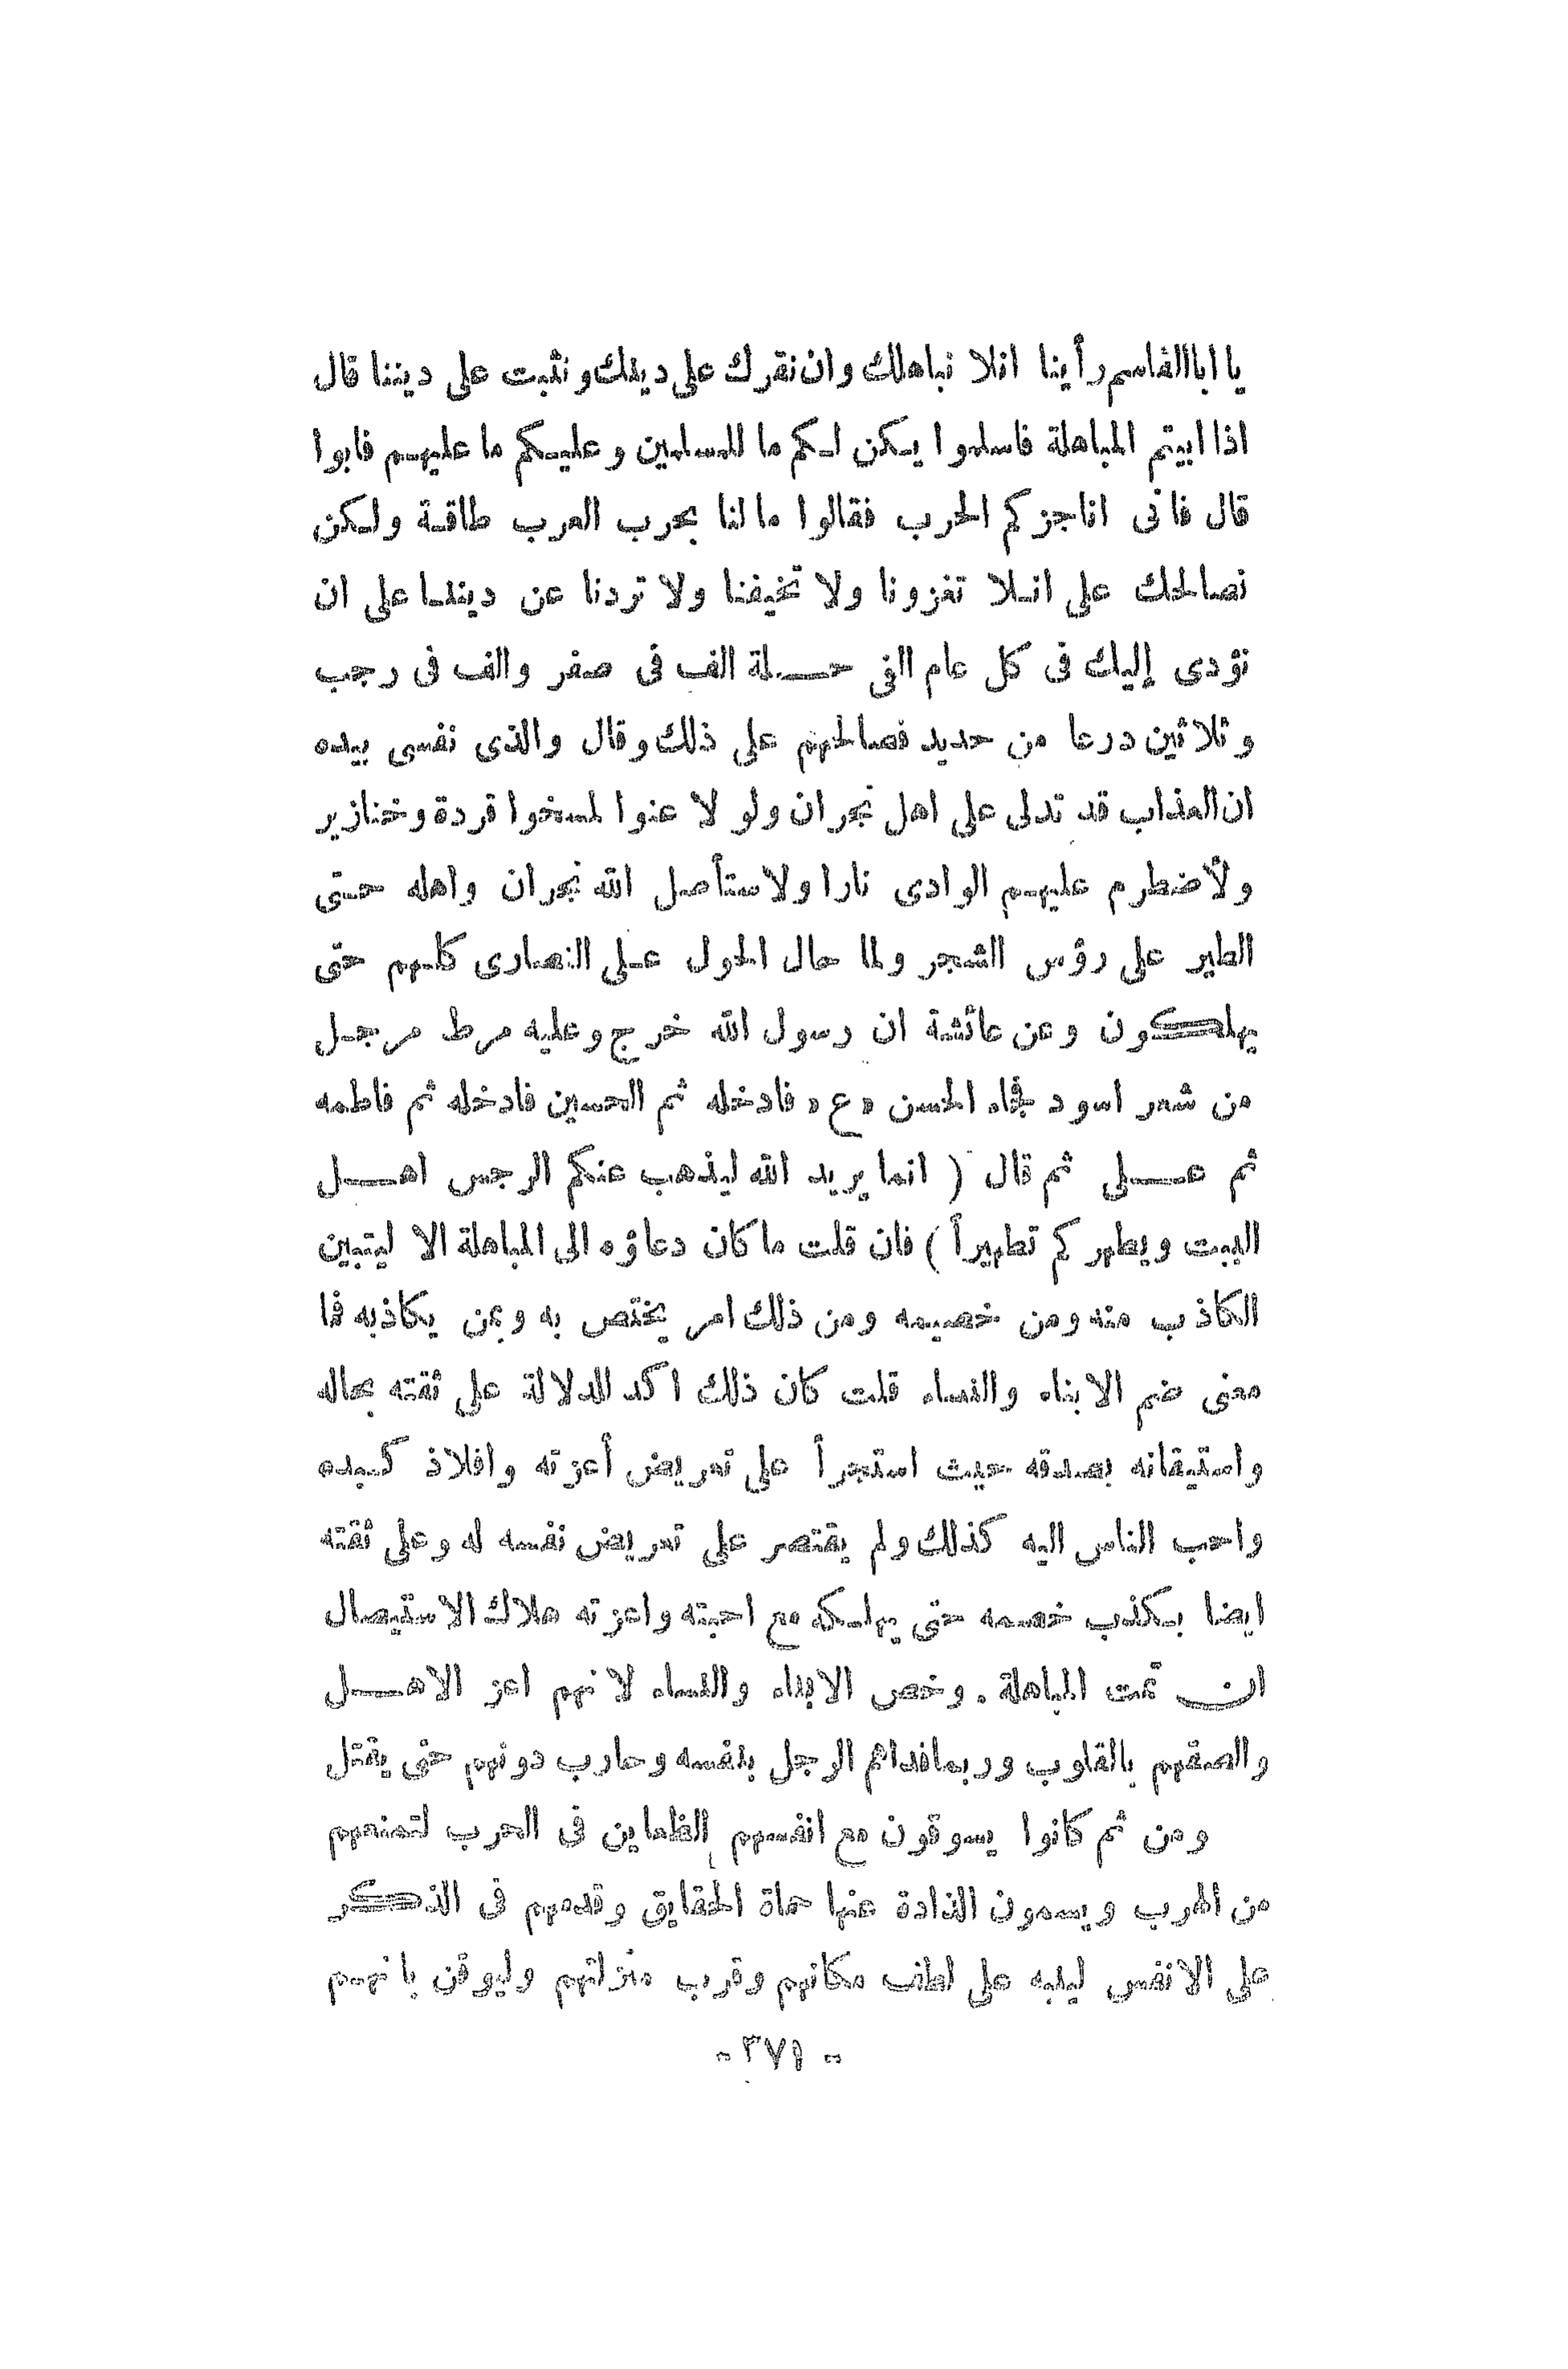 يا ابا القاسم رأينا انلا نباهلك وان نقرك على دينك ونثبت على ديننا قال
اذا ابيتم المباهلة فاسلموا يـكن لـكم ما للمسلمين وعليـكم ما عليهـم فابوا
قال فانى اناجزكم الحرب فقالوا مالنا بحرب العرب طاقـة ولـكن
نصالحك على انـلا تغزونا ولا تخيفنا ولا تردنا عن ديننـا على ان
نؤدى إليك فى كل عام الفى حـــلة الف فى صفر والف فى رجب
وثلاثين درعا من حديد فصالحهم على ذلك وقال والذى نفسى بيده
ان العذاب قد تدلى على اهل نجران ولو لا عنوا لمسخوا قردة وخنازير
ولأضطرم عليهـم الوادى نارا ولاستأصل الله نجران واهله حـتى
الطير على رؤس الشجر ولما حال الحول عـلى النصارى كلـهم حتى
يهلـكون وعن عائشة ان رسول الله خرج وعليه مرط مرجـل
من شعر اسود فجاء الحسن «ع» فادخله ثم الحسين فادخله ثم فاطمه
ثم عـــلى ثم قال ( انما يريد الله ليذهب عنكم الرجس اهـــل
البيت ويطهركم تطهيراً ) فان قلت ما كان دعاؤه الى المباهلة الا ليتبين
الكاذب منه ومن خصيمه ومن ذلك امر يختص به وبمن يكاذبه فما
معنى ضم الابناء والنساء قلت كان ذلك اكد للدلالة على ثقته بحاله
واستيقانه بصدقه حيث استجرأ على تعريض أعزته وافلاذ كـبده
واحب الناس اليه كذلك ولم يقتصر على تعريض نفسه له وعلى ثقته
ايضا بـكذب خصمه حتى يهلـكه مع احبته واعزته هلاك الاستيصال
ان تمت المباهلة . وخص الابناء والنساء لانهم اعز الاهـــل
والصقهم بالقلوب وربما فداهم الرجل بنفسه وحارب دونهم حتى يقتل
ومن ثم كانوا يسوقون مع انفسهم الظعاين فى الحرب لتمنعهم
من الهرب ويسمون الذادة عنها حماة الحقايق وقدمهم فى الذكر
على الانفس لينبه على لطف مكانهم وقرب منزلتهم وليوقن بانهـم
- ٣٧١ -